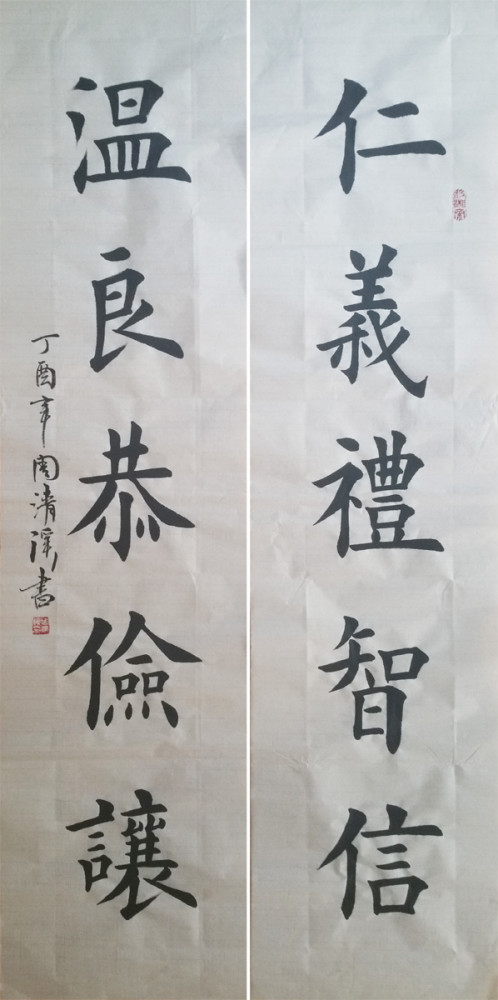 仁義禮智信
温良恭儉讓
丁酉年周清溪書